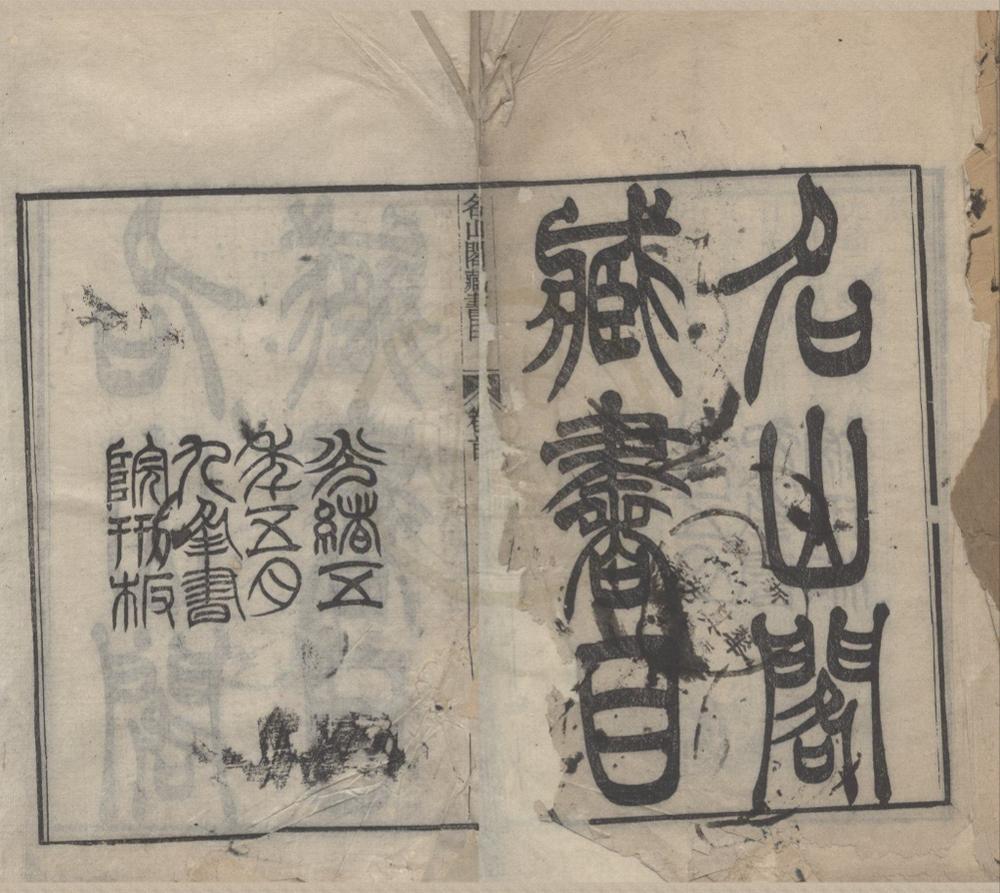 名山閣
藏書目
名山閣藏書目
卷首
光緒五
年五月
九峯書
院刊板